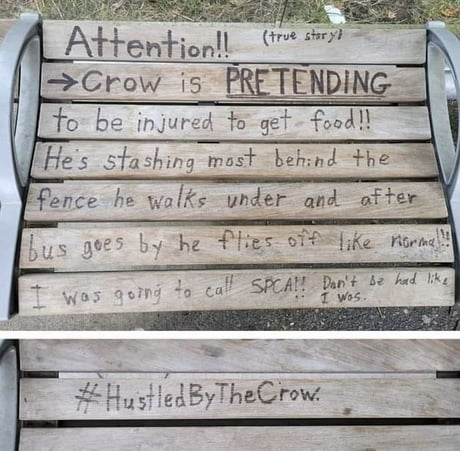 Attention!! (true story!)
→Crow is PRETENDING
to be injured to get food!!
He's stashing most behind the
fence he walks under and after
bus goes by he flies off like normal!!
I was going to call SPCA!! Don't be had like
I was.
#HustledByTheCrow.